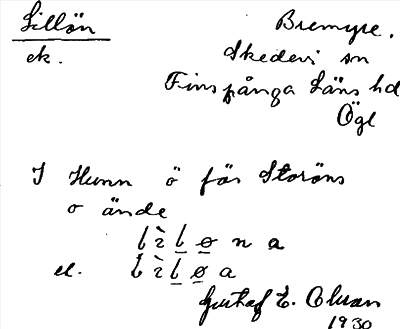 Lillön
Bremyre.
ek.
Skedevi sn
Finspånga Läns hd
Ögl
I Hunn ö för Storöns
o ände
lìløna
el. lìløa
Gustaf E. Olsson
1930